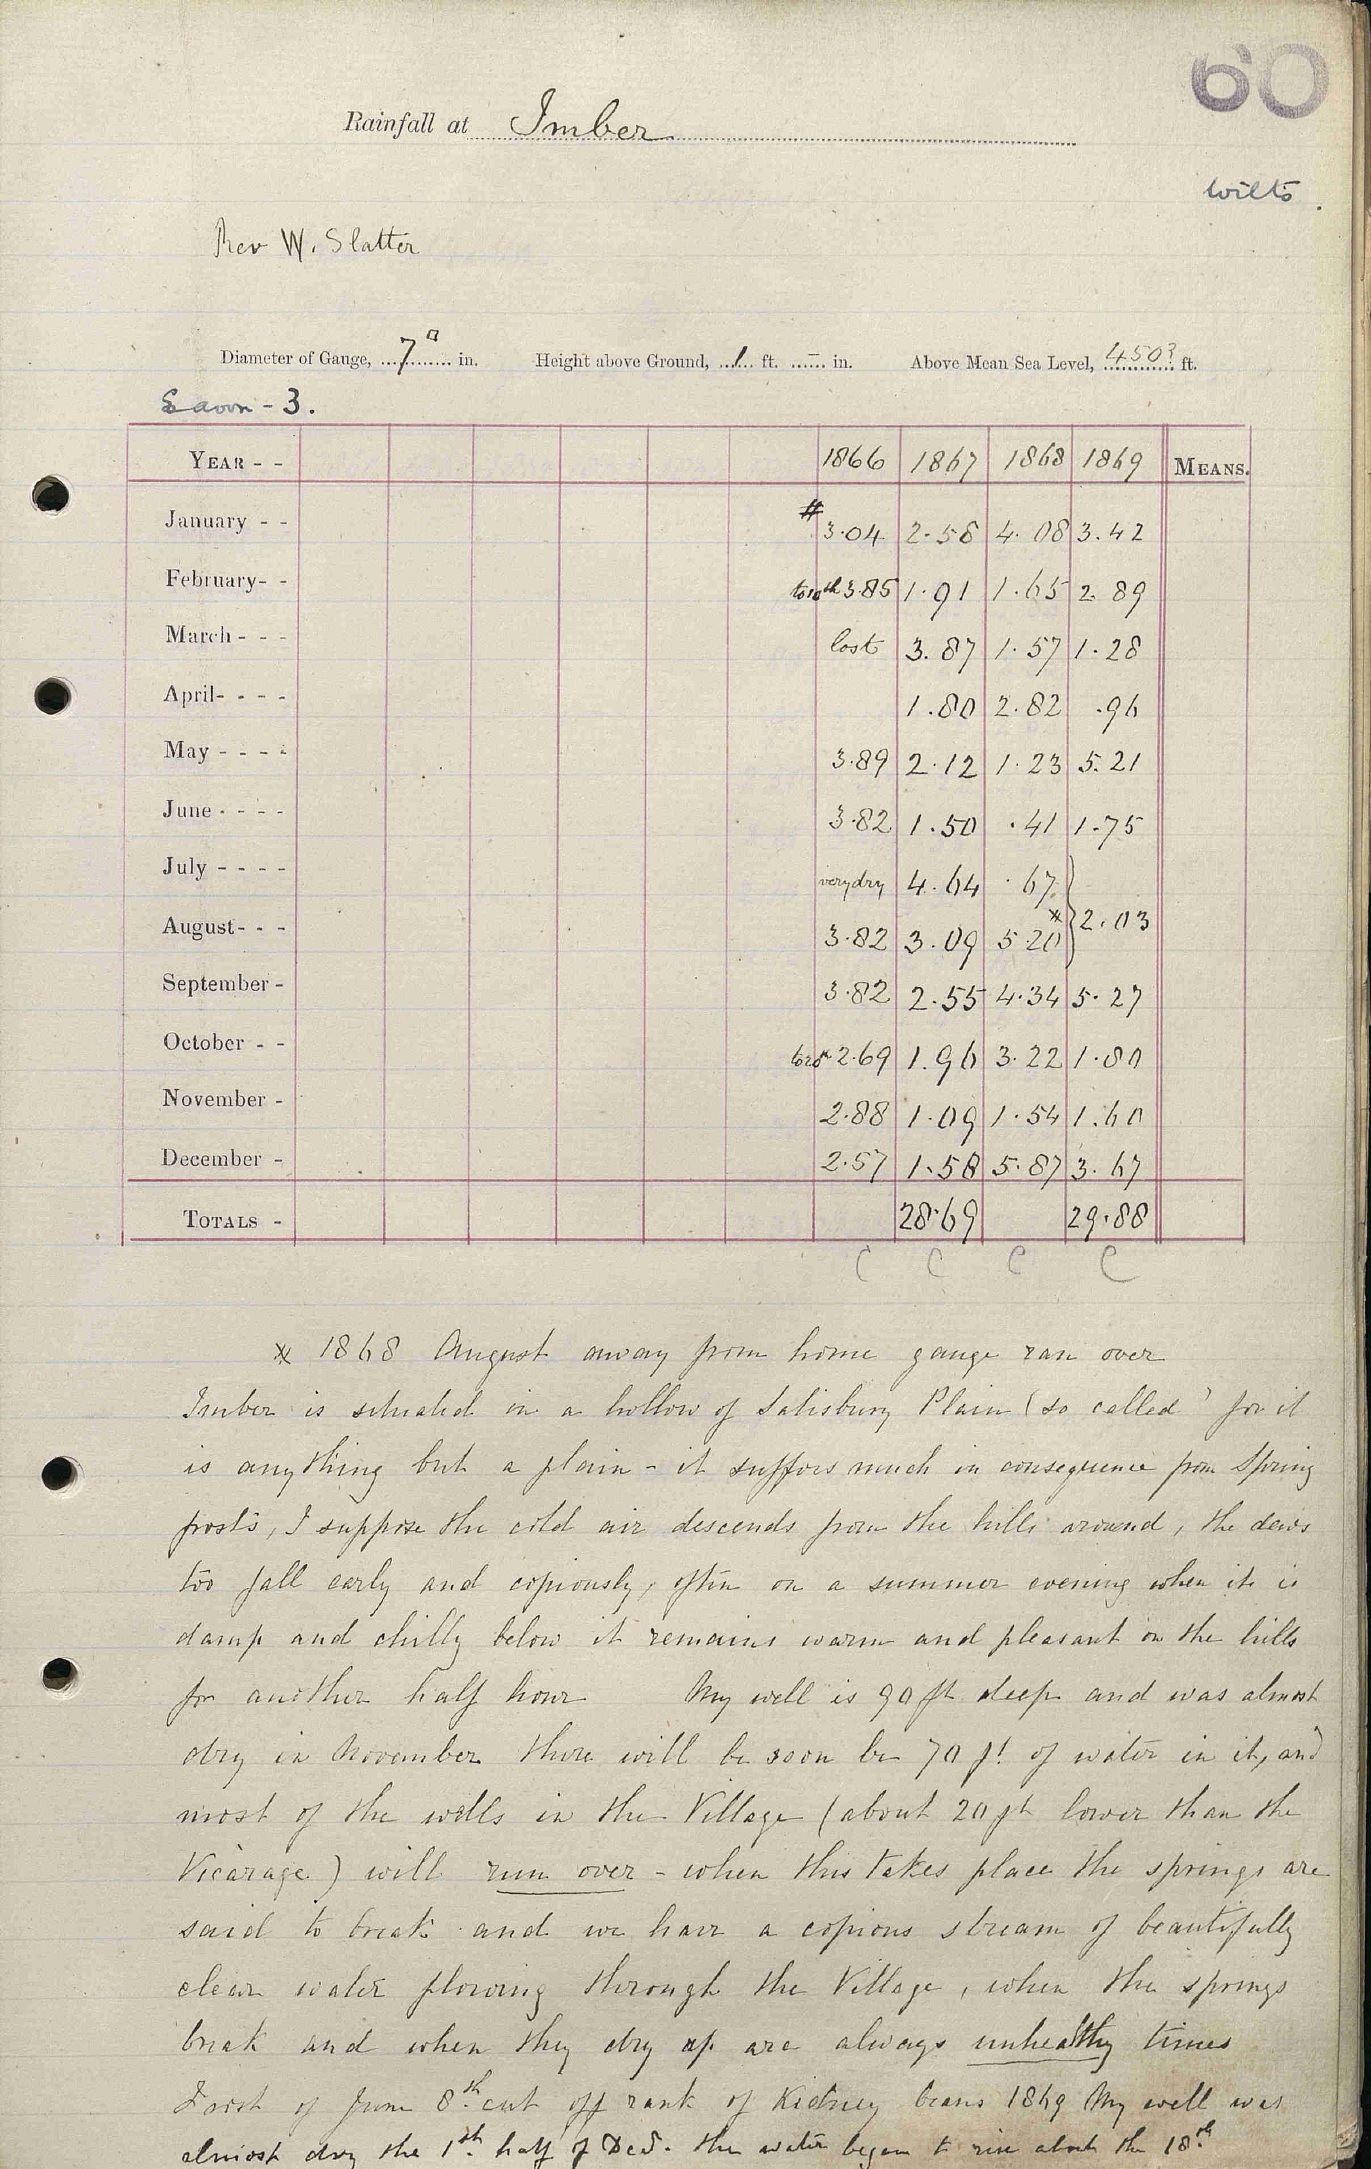 60
Rainfall at Imber
Wilts.
Rev W. Slatter
Diameter of Gauge, 7" in. Height above Ground, 1 ft. – in. Above Mean Sea Level, 450? ft.
- 3.
YEAR - - 1866 1867 1868 1869 MEANS.
January - - # 3.04 2.58 4.08 3.42
February- - to 10th 3.85 1.91 1.65 2.89
March - - - lost 3.87 1.57 1.28
April- - - - 1.80 2.82 .96
May - - - - 3.89 2.12 1.23 5.21
June - - - - 3.82 1.50 .41 1.75
July - - - - very dry 4.64 .67
August- - - 3.82 3.09 5.20 * } 2.03
September - 3.82 2.55 4.34 5.27
October - - 2.69 1.96 3.22 1.80
November - 2.88 1.09 1.54 1.60
December - 2.57 1.58 5.87 3.67
TOTALS - 28.69 29.88
C C C C
* 1868 August away from home gauge ran over
Imber is situated in a hollow of Salisbury Plain (so called) for it
is anything but a plain - it suffers much in consequence from Spring
frosts, I suppose the cold air descends from the hills around, the dews
too fall early and copiously, often on a summer evening when it is
damp and chilly below it remains warm and pleasant on the hills
for another half hour My well is 90 ft deep and was almost
dry in November there will be soon be 70 ft of water in it, and
most of the wells in the Village (about 20 ft lower than the
Vicarage) will run over - when this takes place the springs are
said to break and we have a copious stream of beautifully
clear water flowing through the Village, when the springs
break and when they dry up are always unhealthy times
Frost of June 8th cut off rank of Kidney beans 1869 My well was
almost dry the 1st half of Decr. the water began to rise about the 18th